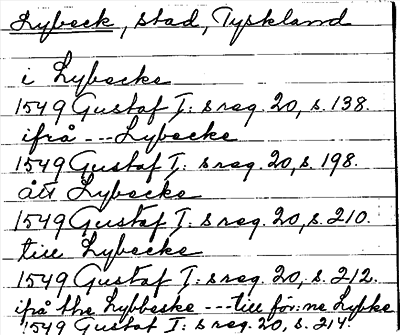 Lybeck, stad, Tyskland
i Lybecke
1549 Gustaf I:s reg. 20, s. 138.
ifrå --- Lybecke
1549 Gustaf I:s reg. 20, s. 198.
ått Lybecke
1549 Gustaf I:s reg. 20, s. 210.
till Lybecke
1549 Gustaf I:s reg. 20, s. 212.
ifrå the Lybbeske --- till för:ne Lybke
1549 Gustaf I:s reg. 20, s. 214